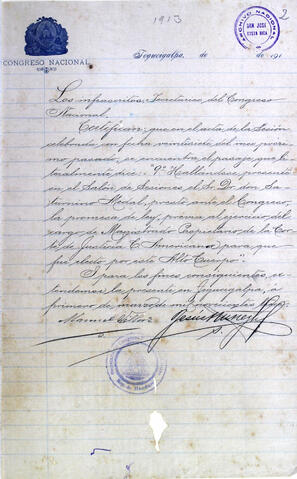 1913
2
ARCHIVO NACIONAL
SAN JOSE
COSTA RICA
CONGRESO NACIONAL
Tegucigalpa, de de 191
Los infrascritos, Secretarios del Congreso
Nacional,
Certifican: que en el acta de la Sesión
celebrada en fecha veintisiete del mes próxi-
mo pasado, se encuentra el pasaje que li-
teralmente dice: "9º Hallándose presente
en el Salón de Sesiones el Sr. Dr. don Sa-
turnino Medal, prestó ante el Congreso,
la promesa de ley, previa al ejercicio del
cargo de Magistrado Propietario de la Cor-
te de Justicia C. Americana, para que
fué electo por este Alto Cuerpo".
I para los fines consiguientes, ex-
tendemos la presente en Tegucigalpa, á
primero de marzo de mil novecientos
Manuel
S.
Jesús
S.
5